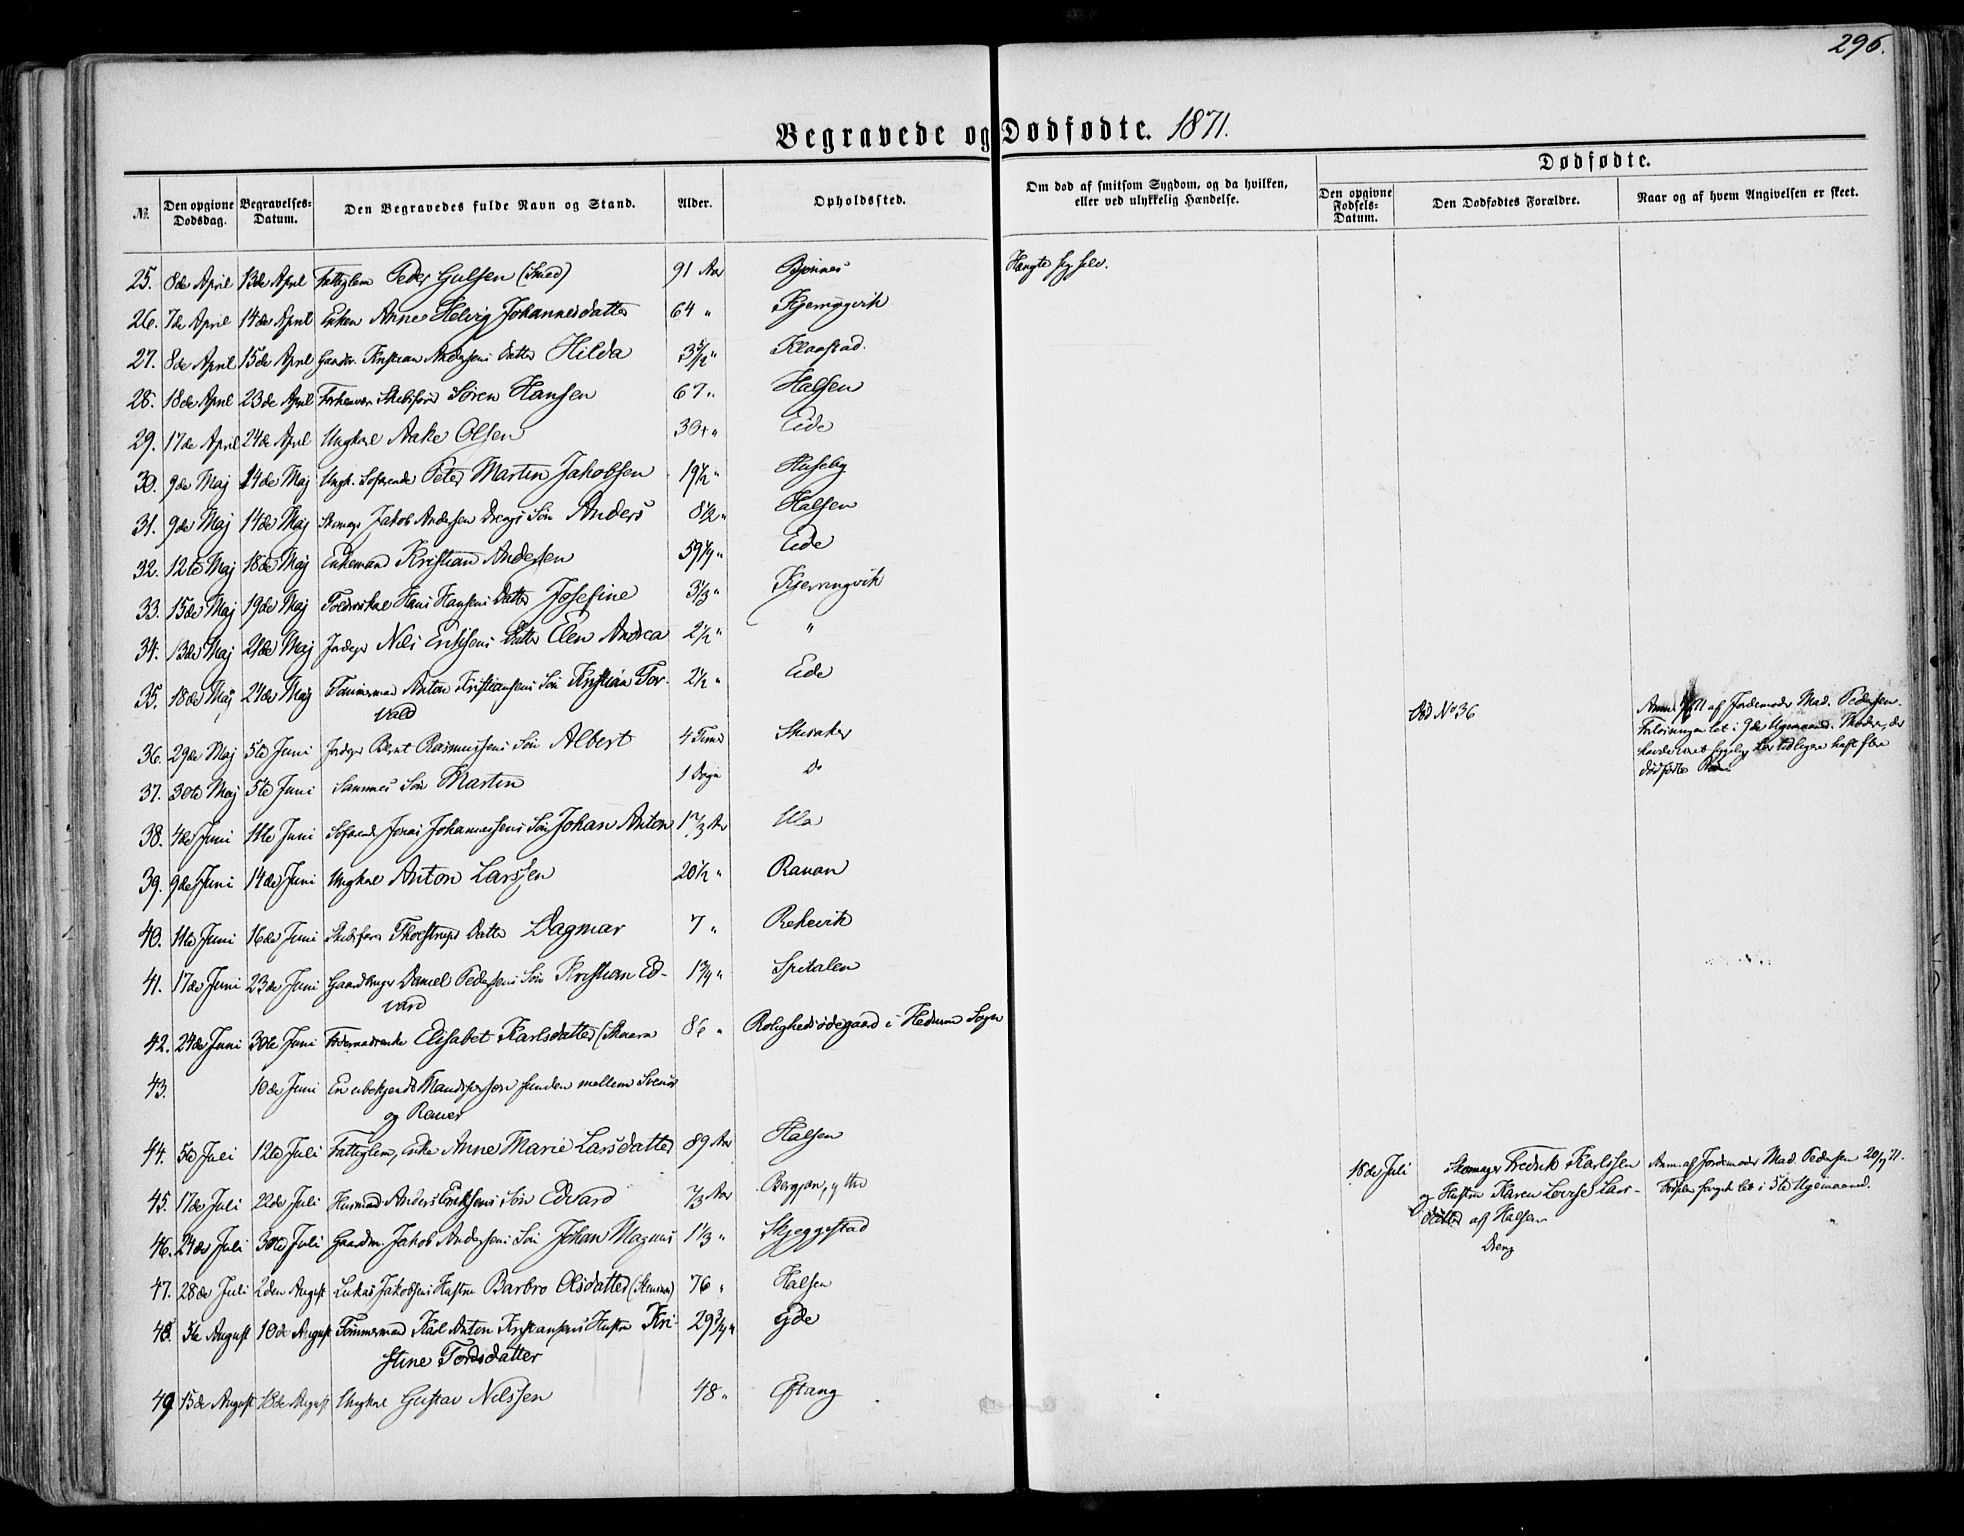 296.
Begravede og Dødfødte. 1871.
Dødfødte.
№ Den opgivne Dødsdag. Begravelses-Datum. Den Begravedes fulde Navn og Stand. Alder. Opholdssted. Om død af smitsom Sygdom, og da hvilken, eller ved ulykkelig Hændelse. Den opgivne Fødsels-Datum. Den Dødfødtes Forældre. Naar og af hvem Angivelsen er skeet.
25. 8de April 13de April Fatteglem Peder Gulsen (Smed) 91 Aar Bjønnes Hængte sig selv.
26. 7de April 14de April Enken Anne Helvig Johannesdatter 64 " Kjerringvik
27. 8de April 15de April Gaardbr. Kristian Andersens Datter Hilda " Klaastad.
28. 18de April 23de April Forhenvær. Skibsfører Søren Hansen 67 " Halsen
29. 17de April 24de April Ungkarl Aake Olsen " Eide
30. 9de Maj 14de Maj Ungk. Søfarende Peter Martin Jakobsen 19½ " Huseby
31. 9de Maj 14de Maj Skomager Jakob Andersen Søn Anders 8½ " Halsen
32. 12te Maj 18de Maj Enkemand Kristian Andersen 59¼ " Eide
33. 15de Maj 19de Maj Hans Hansens Datter Josefine 3⅓ " Kjerringvik
34. 13de Maj 21de Maj Jordeger Nils Eriksens Datter Elen Andrea 2½ " "
35. 18de Maj 24de Maj Tømmermand Anton Kristiansens Søn Kristian Tor- 2½ " Eide
vald
Ved No 36 af Jordemoder Mad. Pedersen.
36. 29de Maj 5te Juni Jordeger Bernt Rasmussens Søn Albert 4 Timer Skisaker
Forløsningen let i 7de Ugemaaned. Moderen, der
havde været sygelig har tidligere haft flere
dødfødte Børn.
37. 30te Maj 5te Juni Sammes Søn Martin 1 Døgn Do
38. 4de Juni 11te Juni Søfarende Jonas Johannessens Søn Johan Anton 1⅔ Aar Ula
39. 9de Juni 14de Juni Ungkarl Anton Larssen 20½ " Rauan
40. 11te Juni 16de Juni Skibsfører Thorstrups Datter Dagmar 7 " Rekevik
41. 17de Juni 23de Juni Gaardbruger Daniel Pedersens Søn Kristian Ed- 1¾ " Spitalen
vard
42. 24de Juni 30te Juni Elisabet Karlsdatter 86 " Rolighedsødegaard i Hedrum Sogn
43. 10de Juni En ubekjendt Mandsperson funden mellem Svenør
og Rauer
44. 5te Juli 12te Juli Fatteglem, Enke Anne Marie Larsdatter 89 Aar Halsen
18de Juli Skomager Fredrik Karlssen Anm. af Jordemoder Mad. Pedersen 20/7 71.
45. 17de Juli 22de Juli Husmand Anders Eriksens Søn Edvard ⅔ Aar Bergan, ytre
og Hustru Karen Lovise Lars- Fødselen let i 5te Ugemaaned.
datter af Halsen
46. 24de Juli 30te Juli Gaardm. Jakob Andersens Søn Johan Magnus 1⅓ " Skjeggestad
Dreng
47. 28de Juli 2den August Lukas Jakobsens Hustru Barbro Olsdatter 76 " Halsen
48. 5te August 10de August Tømmermand Karl Anton Kristiansens Hustru Kri- 29¾ " Eide
stine Tordsdatter
49 15de August 18de August Ungkarl Gustav Nilssen 48 " Øftang